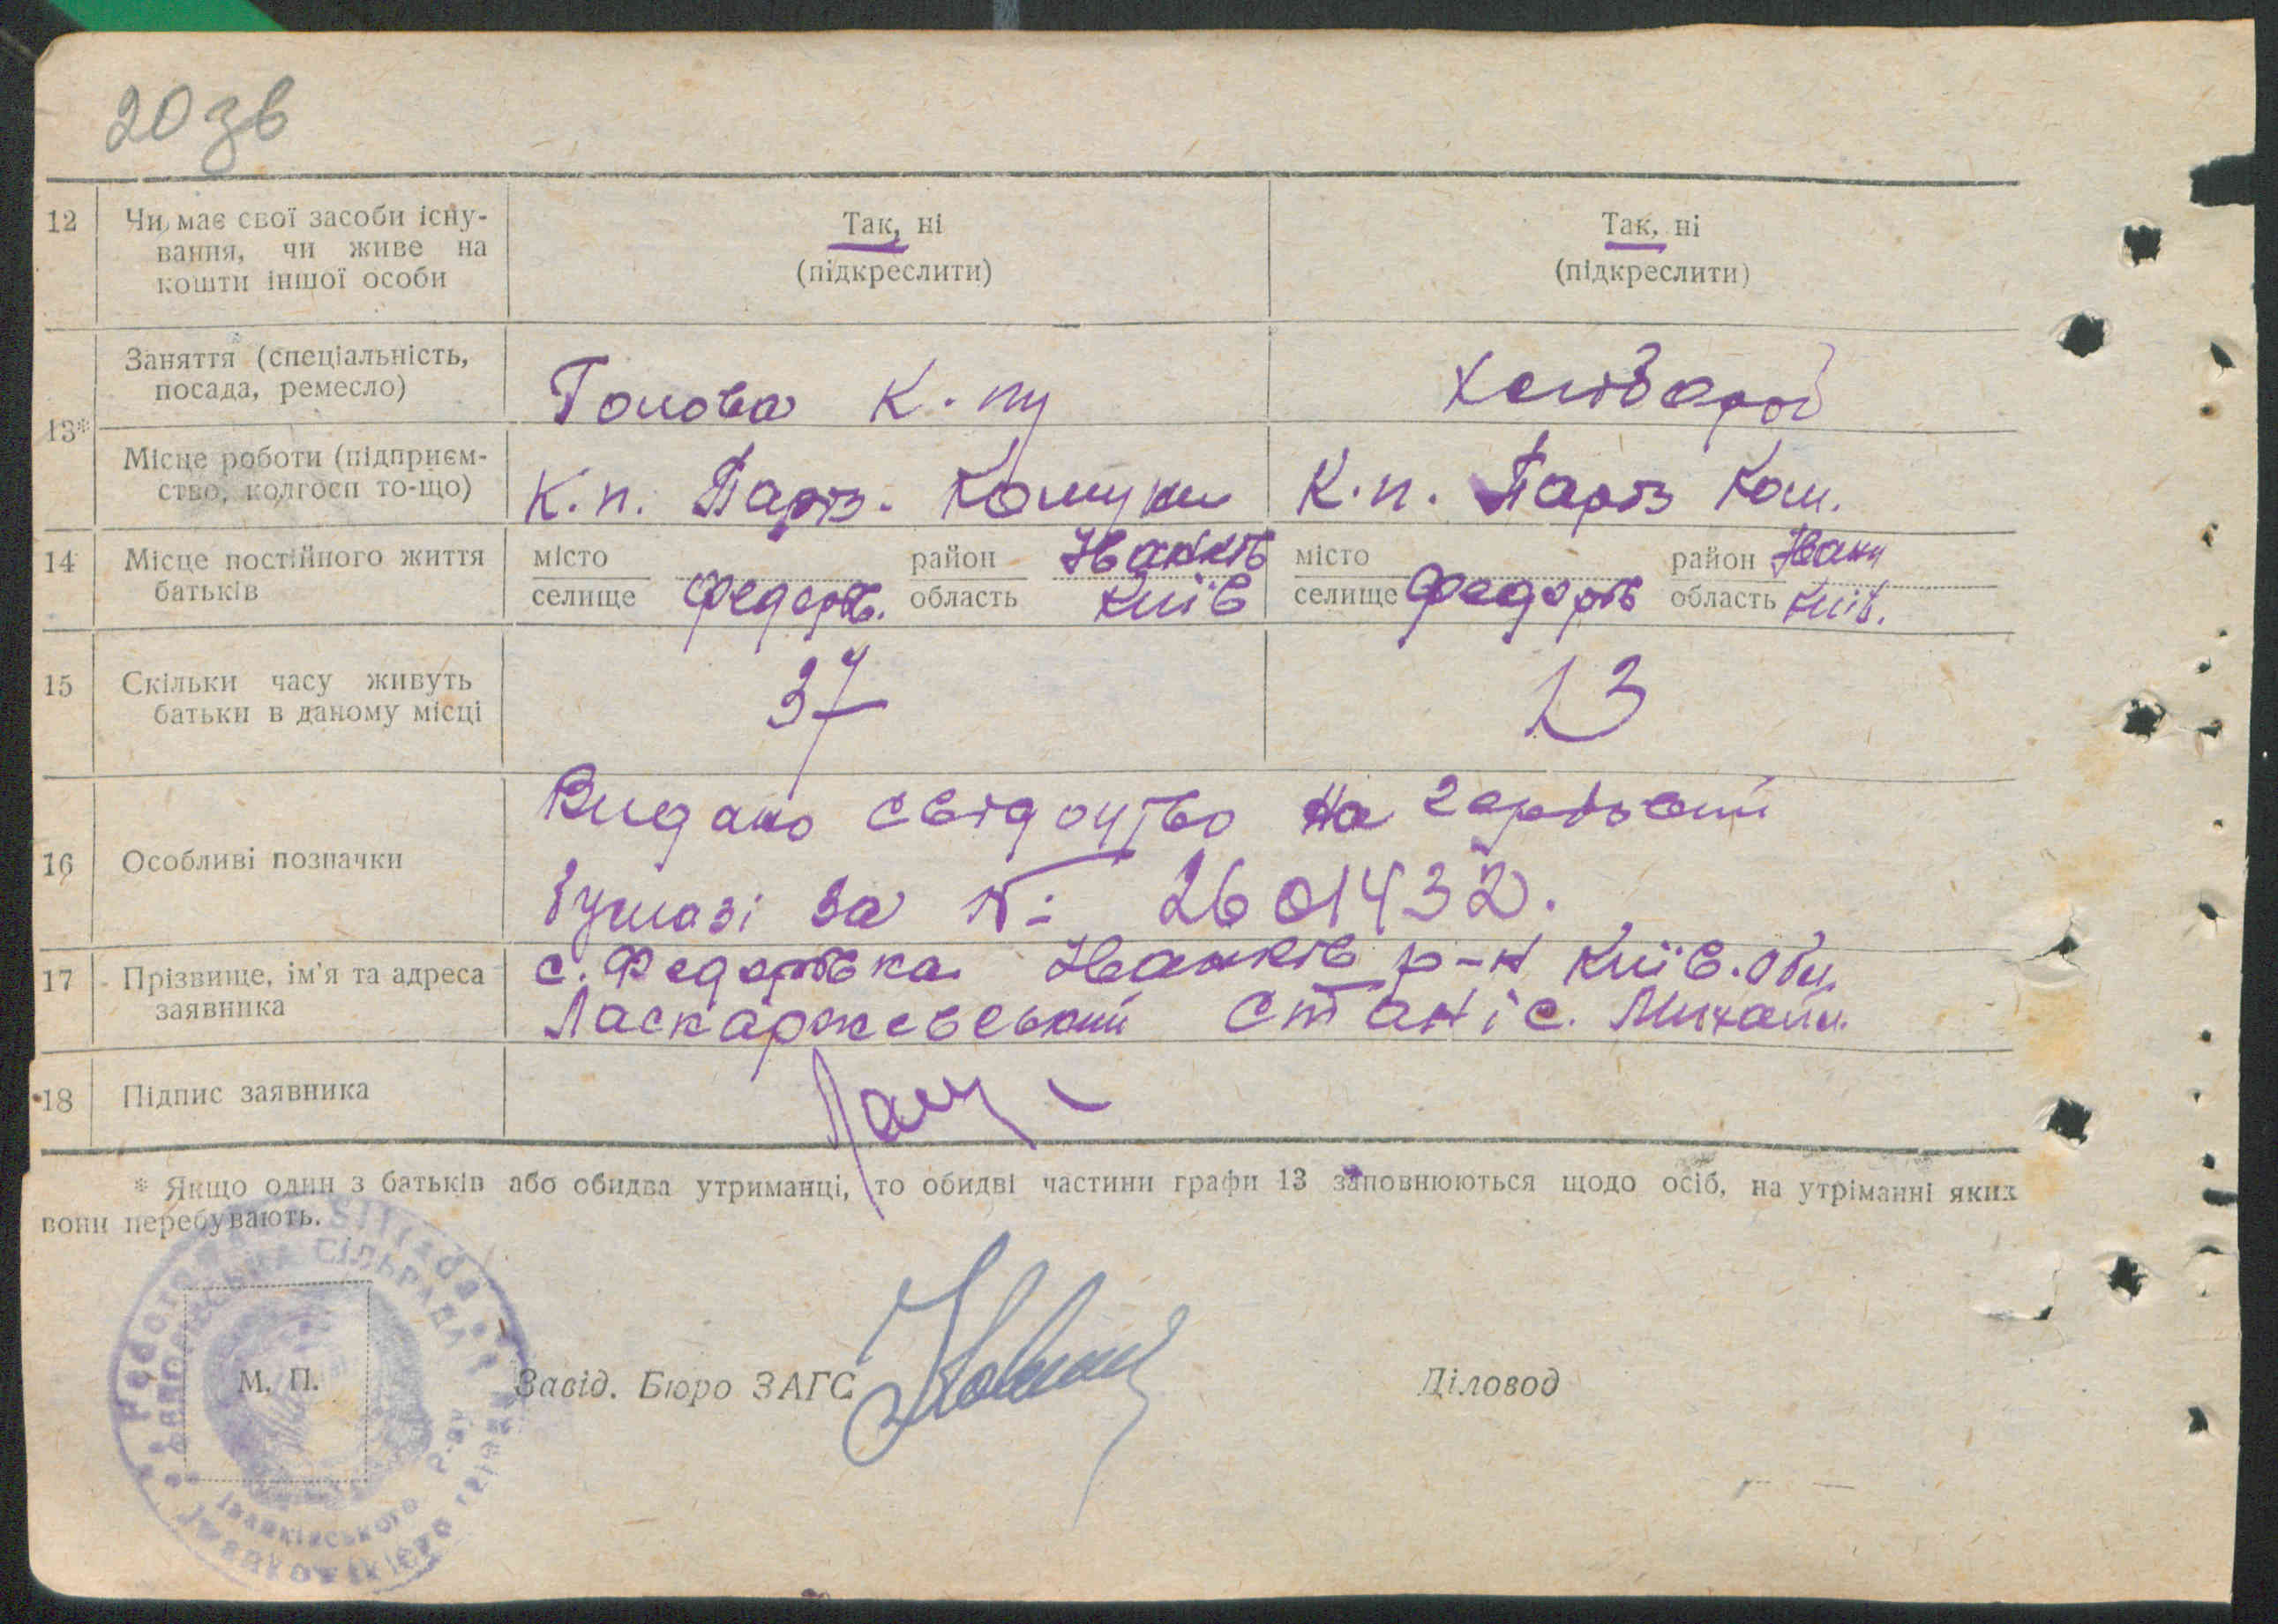 20 зв
12 Чи має свої засоби існу-
вання, чи живе на
кошти іншої особи
Так, ні
(підкреслити)
Так, ні
(підкреслити)
13*
Заняття (спеціальність,
посада, ремесло)
Голова к. пу
Хлібороб
Місце роботи (підприєм-
ство, колгосп то-що)
К.п. Париз. Комуни
К.п. Париз Ком.
14 Місце постійного життя
батьків
місто
селище Федорів.
район Іванків
область Київ
місто
селище Федорів
район Іванк
область Київ.
15 Скільки часу живуть
батьки в даному місці
37
13
16 Особливі позначки
Видано свідоцтво на гербовій
бумазі за № 2601432.
17 Прізвище, ім'я та адреса
заявника
с. Федорівка Іванків р-н Київ. Обл.
Ласкаржевський Станіс. Михайл.
18 Підпис заявника
* Якщо один з батьків або обидва утриманці, то обидві частини графи 13 заповнюються щодо осіб, на утріманні яких
вони перебувають.
СІЛЬРАДА
Іванківського
Р-ну
М. П.
Завід. Бюро ЗАГС
Діловод